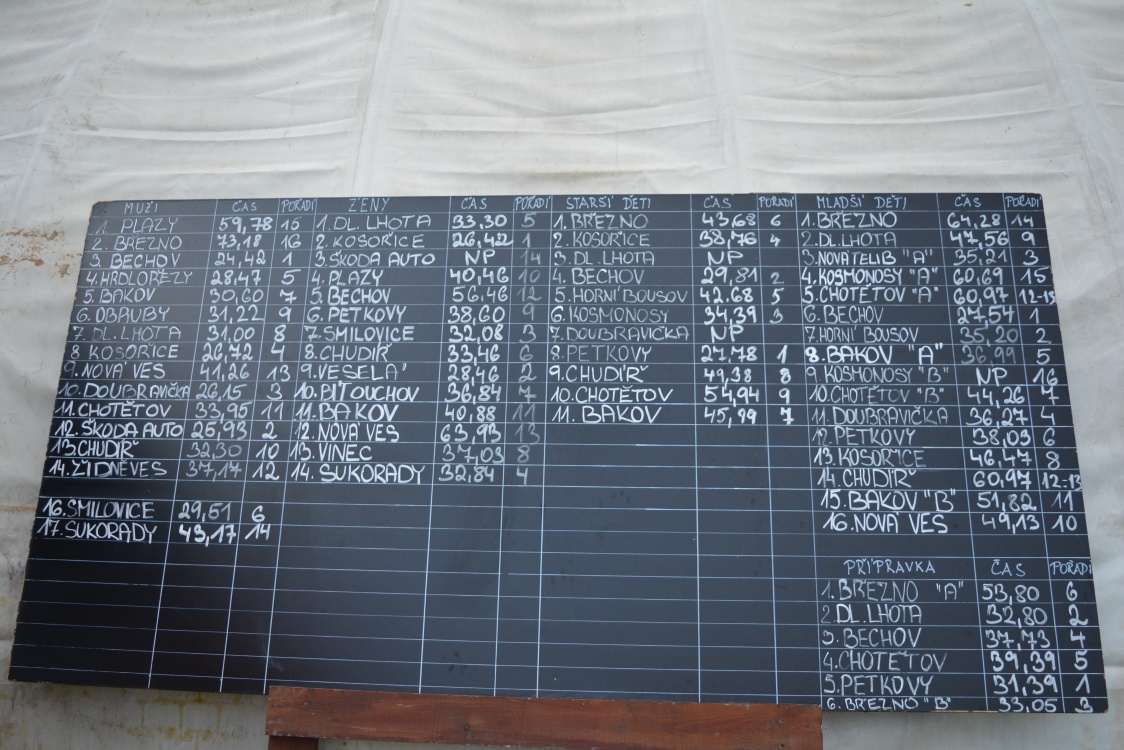 MUŽI ČAS POŘADÍ
1. PLAZY 59,78 15
2. BŘEZNO 73,18 16
3. BECHOV 24,42 1
4. HRDLOŘEZY 28,47 5
5. BAKOV 30,60 7
6. OBRUBY 31,22 9
7. DL. LHOTA 31,00 8
8 KOSOŘICE 26,72 4
9. NOVÁ VES 41,26 13
10. DOUBRAVIČKA 26,15 3
11. CHOTĚTOV 33,95 11
12. ŠKODA AUTO 25,93 2
13. CHUDÍŘ 32,30 10
14. ŽIDNĚVES 37,17 12
16. SMILOVICE 29,51 6
17. SUKORADY 43,17 14
ŽENY ČAS POŘADÍ
1. DL. LHOTA 33,30 5
2. KOSOŘICE 26,42 1
3. ŠKODA AUTO NP 14
4. PLAZY 40,46 10
5. BECHOV 56,46 12
6. PETKOVY 38,60 9
7. SMILOVICE 32,08 3
8. CHUDÍŘ 33,46 6
9. VESELÁ 28,46 2
10. PÍŤOUCHOV 36,84 7
11. BAKOV 40,88 11
12. NOVÁ VES 63,93 13
13. VINEC 37,03 8
14. SUKORADY 32,84 4
STARŠÍ DĚTI ČAS POŘADÍ
1. BŘEZNO 43,68 6
2. KOSOŘICE 38,76 4
3. DL. LHOTA NP
4. BECHOV 29,81 2
5. HORNÍ BOUSOV 42.68 5
6. KOSMONOSY 34,39 3
7. DOUBRAVIČKA NP
8. PETKOVY 27,78 1
9. CHUDÍŘ 49,38 8
10. CHOTĚTOV 54,94 9
11. BAKOV 45,99 7
MLADŠÍ DĚTI ČAS POŘADÍ
1. BŘEZNO 64,28 14
2. DL. LHOTA 47,56 9
3. NOVÁ TELIB "A" 35,21 3
4. KOSMONOSY "A" 60,69 15
5. CHOTĚTOV "A" 60,97 12-13
6. BECHOV 27,54 1
7. HORNÍ BOUSOV 35,20 2
8. BAKOV "A" 36,99 5
9 KOSMONOSY "B" NP 16
10. CHOTĚTOV "B" 44,26 7
11 DOUBRAVIČKA 36,27 4
12. PETKOVY 38,03 6
13 KOSOŘICE 46,47 8
14. CHUDÍŘ 60,97 12-13
15. BAKOV "B" 51,82 11
16. NOVÁ VES 49,13 10
PŘÍPRAVKA ČAS POŘADÍ
1. BŘEZNO "A" 53,80 6
2. DL. LHOTA 32,80 2
3. BECHOV 37,73 4
4. CHOTĚTOV 39,39 5
5. PETKOVY 31,39 1
6. BŘEZNO "B" 33,05 3